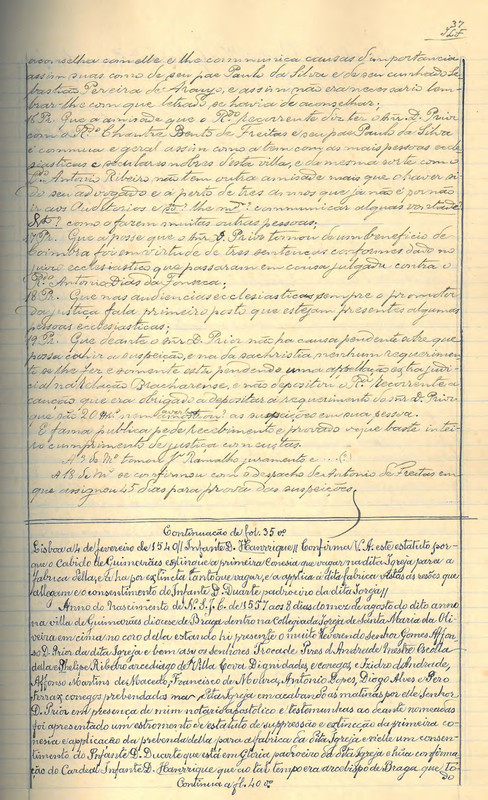 37
aconselha com elle, e lhe communica causas d'importancia
assim suas como de seu pae Paulo da Silva e de seu cunhado Se-
bastião Pereira de Araujo, e assim não era necessario lem-
brar-lhe com que letrado se havia de aconselhar;
16 Pr. Que a amisade que o Rdo. Recorrente diz ter o snr. D. Prior
com o Rdo. Chantre Bento de Freitas e seu pae Paulo da Silva
é commua e geral assim como a tem com as mais pessoas eccle-
siasticas e seculares nobres d'esta villa, e da mesma sorte com o
Antonio Ribeiro não tem outra amisade mais que o haver si-
do seu advogado e á perto de tres annos que já não é por não
ir aos Auditorios e communicar algũas
como a fazem muitas outras pessoas;
17 Pr. Que a posse que o snr. D. Prior tomou de um beneficio de
Coimbra foi em virtude de tres sentenças conformes dado no
juizo ecclesiastico que passaram em cousa julgada contra o
Rdo. Antonio Dias da Fonseca;
18 Pr. Que nas audiencias ecclesiasticas sempre o promotor
da justiça fala primeiro posto que estejam presentes algumas
pessoas ecclesiasticas;
19 Pr. Que deante o snr. D. Prior não ha causa pendente sobre que
possa cahir a suspeição, e na da sachristia nenhum requerimen-
to se lhe fez e somente está pendendo uma appellação extraju-
cial na Relação Bracharense, e não depositou o Rdo. Recorrente a
caução que era obrigado a depositar a requerimento do snr. D. Prior
que são 20 mil nem as suspeições em sua pessoa.
E fama publica pede recebimento e provado o que baste intei-
ro cumprimento de justiça com custas.
A 2 de Mço tomou Ramalho juramento e ...
A 13 de Mço se confirmou com o despacho de Antonio de Freitas em
que assignou 45 dias para prova das suspeições.
Continuação de fol. 35 vo
Lisboa a 4 de fevereiro de 1540 // Infante D. Hanrrique // Confirma V. A. este estatuto por-
que o Cabido de Guimarães extingue a primeira Conesia que vagar na dita Igreja para a
fabrica della, e a ha por extincta tanto que vagar, e a applica á dita fabrica vistas as resões que
allegam e o consentimento do Infante D. Duarte padroeiro da dita Igreja //
Anno do Nascimento de N. S. J. C. de 1557 aos 8 dias do mez de agosto do dito anno
na villa de Guimarães diocese de Braga dentro na collegiada Igreja de Santa Maria da Oli-
veira em cima no coro della estando hi presente o muito Reverendo Senhor Gomes Affon-
so D. Prior da dita Igreja e bem assi os senhores Trocade Pires d'Andrade Mestre Escolla
della e Phelipe Ribeiro arcediago de Villa Cova Dignidades e conegos, e Izidro d'Andrade,
Affonso Martins de Macedo, Francisco de Moura, Antonio Lopez, Diogo Alves e Pero
Ferraz conegos prebendados na dita Igreja em acabando as matinas por elle Senhor
D. Prior em presença de mim notario apostolico e testemunhas ao deante nomeadas
foi apresentado um estromento de estatuto de suppressão e extincção da primeira co-
nesia e applicação da prebenda della para a fabrica da dita Igreja e visto um consen-
timento do Infante D. Duarte que está em Gloria, padroeiro da dita Igreja e hũa confirma-
ção do Cardeal Infante D. Hanrrique que ao tal tempo era arcebispo de Braga que to-
do
Continúa a fl. 40 vo